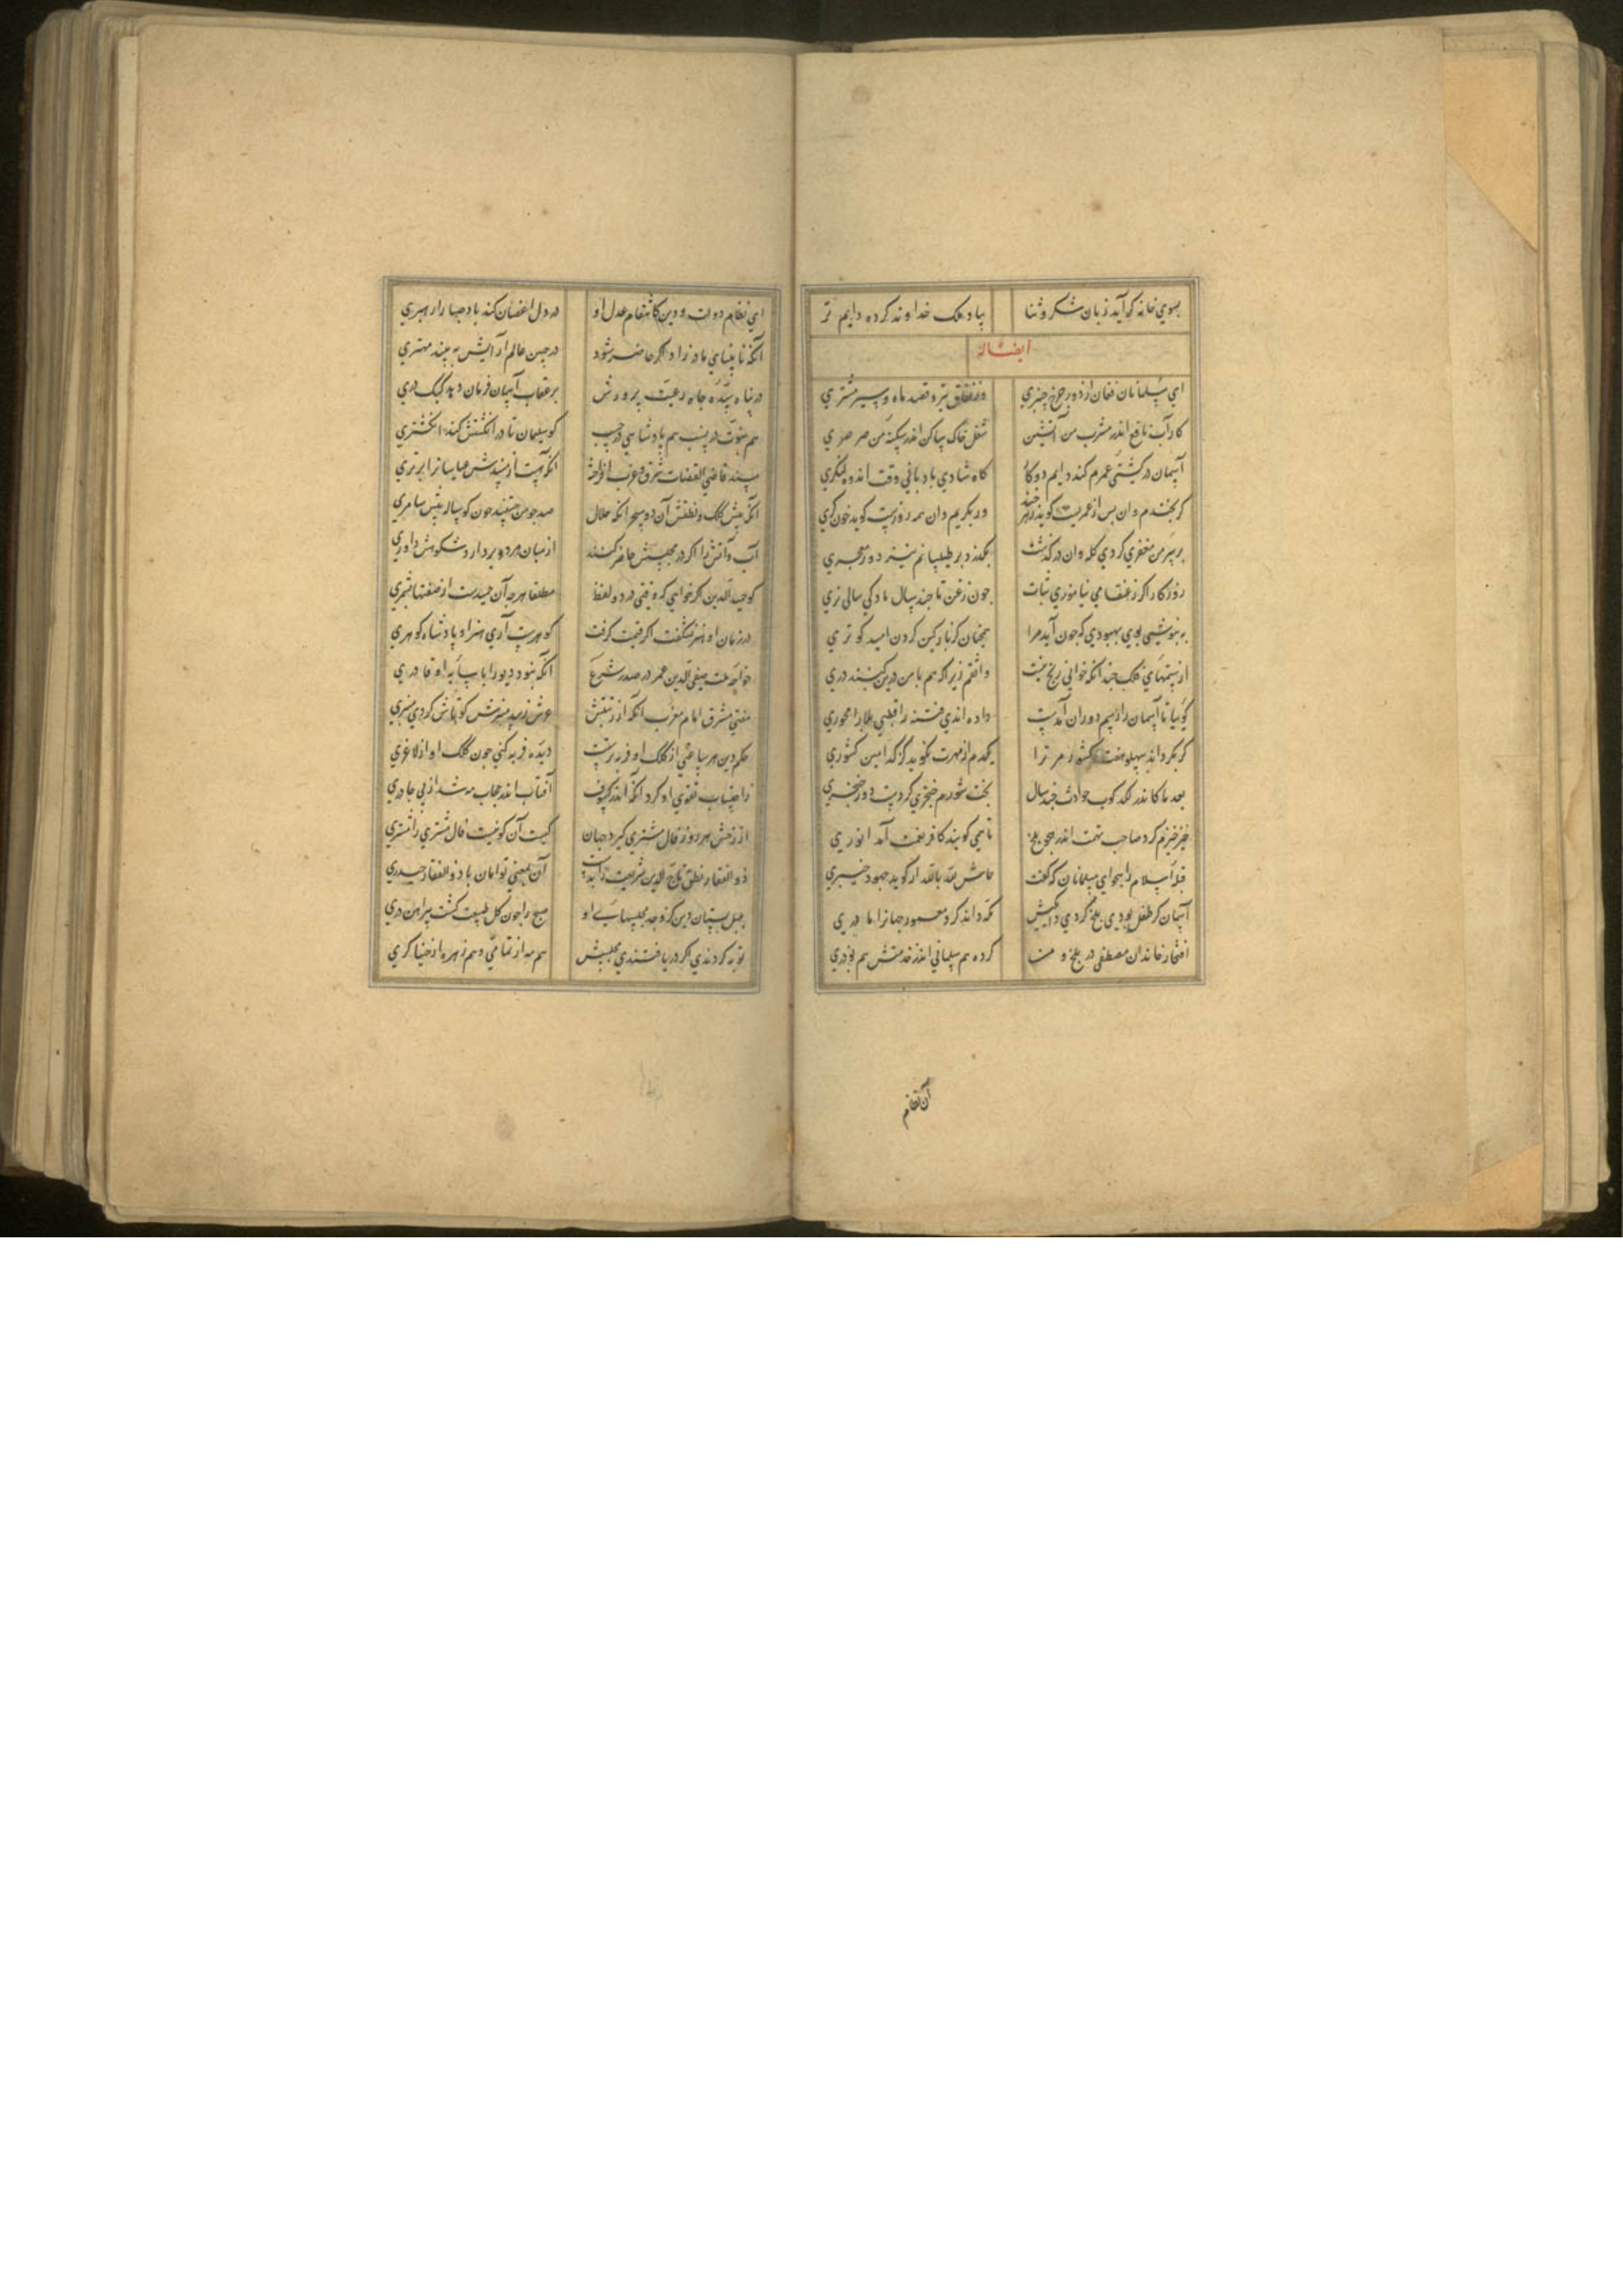 بسوي خانه کو آيد زبان شکر و ثنا بياد ملک خداوند کرده دايم تر
ايضاً له
اي مسلمانان فغان از دور چرخ چنبري وز نفاق تير و قصد ماه و سير مشتري
کار آب نافع اندر مشرب من آتشيست شغل خاک ساکن اندر سکنه من صرصري
آسمان در کشتي عمرم کند دايم دو کار کاه شادي بادباني وقت اندوه لنکري
کر بخندم وان بس از عمريست کويد زهرخند ور بکريم وان همه روزيست کويد خون کري
بر سر من مغفري کردي کله وان درکذشت بکذرد بر طيلسانم نيز دور معجري
روزکارا کر ز عنقا مي نياموزي ثبات چون زغن تا چند سال مادکي سالي نري
به نيوشي بوي بهبودي که چون آيد مرا همچنان کز پارکين کردن اميد کوثري
از ستمهاي فلک چندانکه خواهي رنج نيست واثقم زيرا که هم با من درين کنبد دري
کوييا تا آسمان را رسم دوران آمدست داده اندي فتنه را قطبي بلا را محوري
کر بکرداند بپهلو هفت کشور مر ترا يکدم از مهرت نکويد کز کدامين کشوري
بعد ما کاندر لکدکوب حوادث چند سال بخت شورم خنجري کردست دور خنجري
خيرخيرم کرد صاحب تهمت اندر هجو بلخ تا همي کويند کافر نعمت آمد انوري
قبه اسلام را هجو اي مسلمانان که کفت حاش لله بالله ار کويد جهود خيبري
آسمان کر طفل بودي بلخ کردي دايکيش مکه داند کرد معمور جهانرا مادري
افتخار خاندان مصطفي در بلخ و من کرده هم سلماني اندر خدمتش هم بوذري
آن نظام
اي نظام دولت و دين کانتقام عدل او در دل اغصان کند باد صبا را رهبري
آنکه نابيناي مادر زاد اکر حاضر شود در جبين عالم آرايش به بيند مهتري
در پناه سده جاه رعيت پرورش بر عقاب آسمان فرمان دهد کبک دري
هم نبوت در نسب هم پادشاهي در حسب کو سليمان تا در انکشتش کند انکشتري
مسند قاضي القضات شرق و غرب افراخته آنکه هست از مسندش عباسيانرا برتري
آنکه پيش کلک و نطقش آن دو سحر انکه حلال صد چو من هستند چون کوساله پيش سامري
آب و آتش را اکر در مجلسش حاضر کنند از ميان هردو بردارد شکوهش داوري
کو حميدالدين کر خواهي که وقتي در دو لفظ مطلقا هر چه آن حميدست از صفتها بشمري
در زمان او هنر نشکفت اکر قيمت کرفت کوهرست آري هنر او پادشاه کوهري
خواجه ملت صفي الدين عمر در صدر شرع آنکه نبود ديو را با سايه او قادري
مفتي مشرق امام مغرب انکه از رتبتش عرش زيبد منبرش کو تاش کردي منبري
حکم دين هر ساعتي از کلک او فربه ترست ديده فربه کني چون کلک او از لاغري
ز احتساب تقوي او کرد انکه اندر کسوف آفتاب اندر حجاب مه شد از بي چادري
از رخش هر روز فال مشتري کيرد جهان کيست آن کو نيست فال مشتري را مشتري
ذوالفقار نطق تاج الدين شريعت را بدست آن بمعني توامان با ذوالفقار حيدري
بلبل بستان دين کز وجد مجلسهاي او صبح را چون کل طبيعت کشت پيراهن دري
توبه کردندي اکر دريافتندي مجلسش هم مه از نمامي و هم زهره از خنياکري